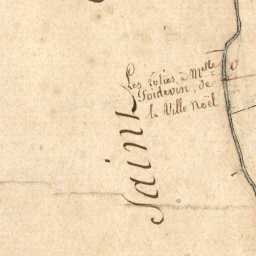 Les folies à Melle
Poidevin, de
la Ville Noël
Saint